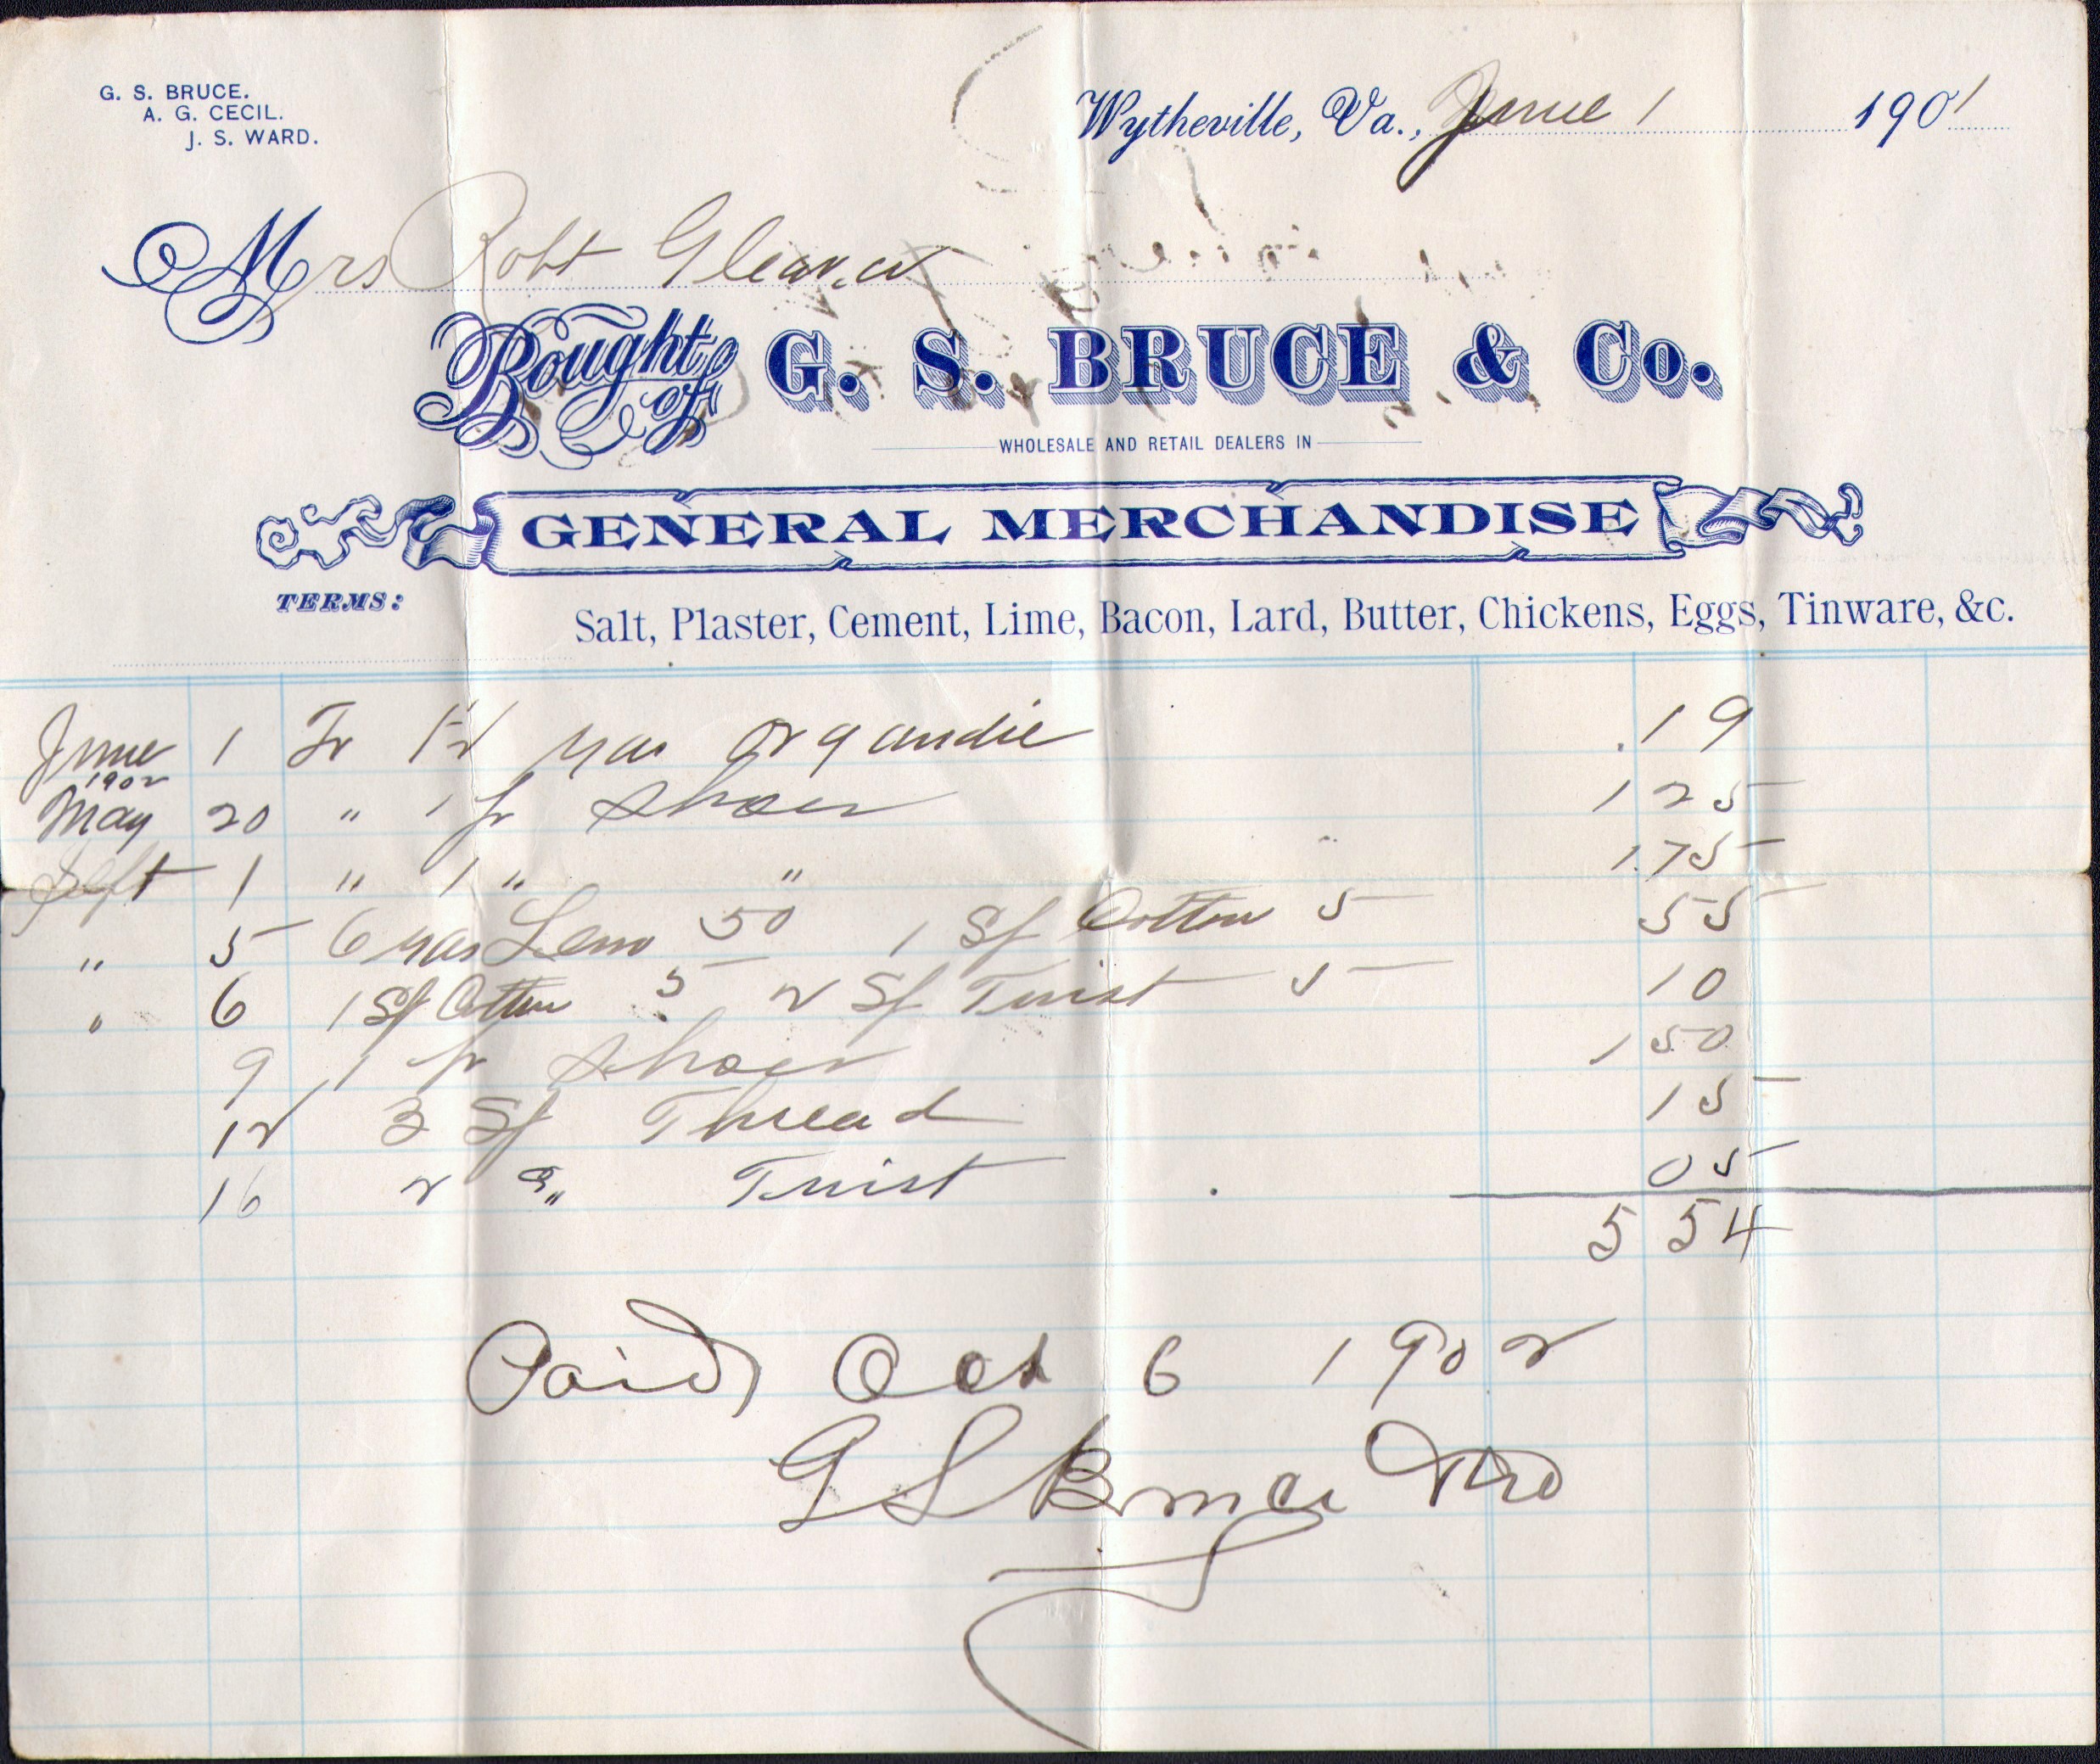 G. S. BRUCE.
A. G. CECIL.
J. S. WARD.
Wytheville, Va., June 1 1901
Mrs Robt Gleaves
Bought of G. S. BRUCE & Co.
WHOLESALE AND RETAIL DEALERS IN
GENERAL MERCHANDISE
TERMS:
Salt, Plaster, Cement, Lime, Bacon, Lard, Butter, Chickens, Eggs, Tinware, &c.
June 1 To yds organdie .19
1902
May 20 " 1 pr Shoes 1 25
Sept 1 " 1 " " 1.75
" 5 6 yds Leno 50 1 Sp Cotton 5 55
" 6 1 Sp Cotton 5 2 Sp Twist 5 10
9 1 pr Shoes 1 50
12 3 Sp Thread 15
16 2 " Twist 05
5 54
Paid Oct 6 1902
G S Bruce